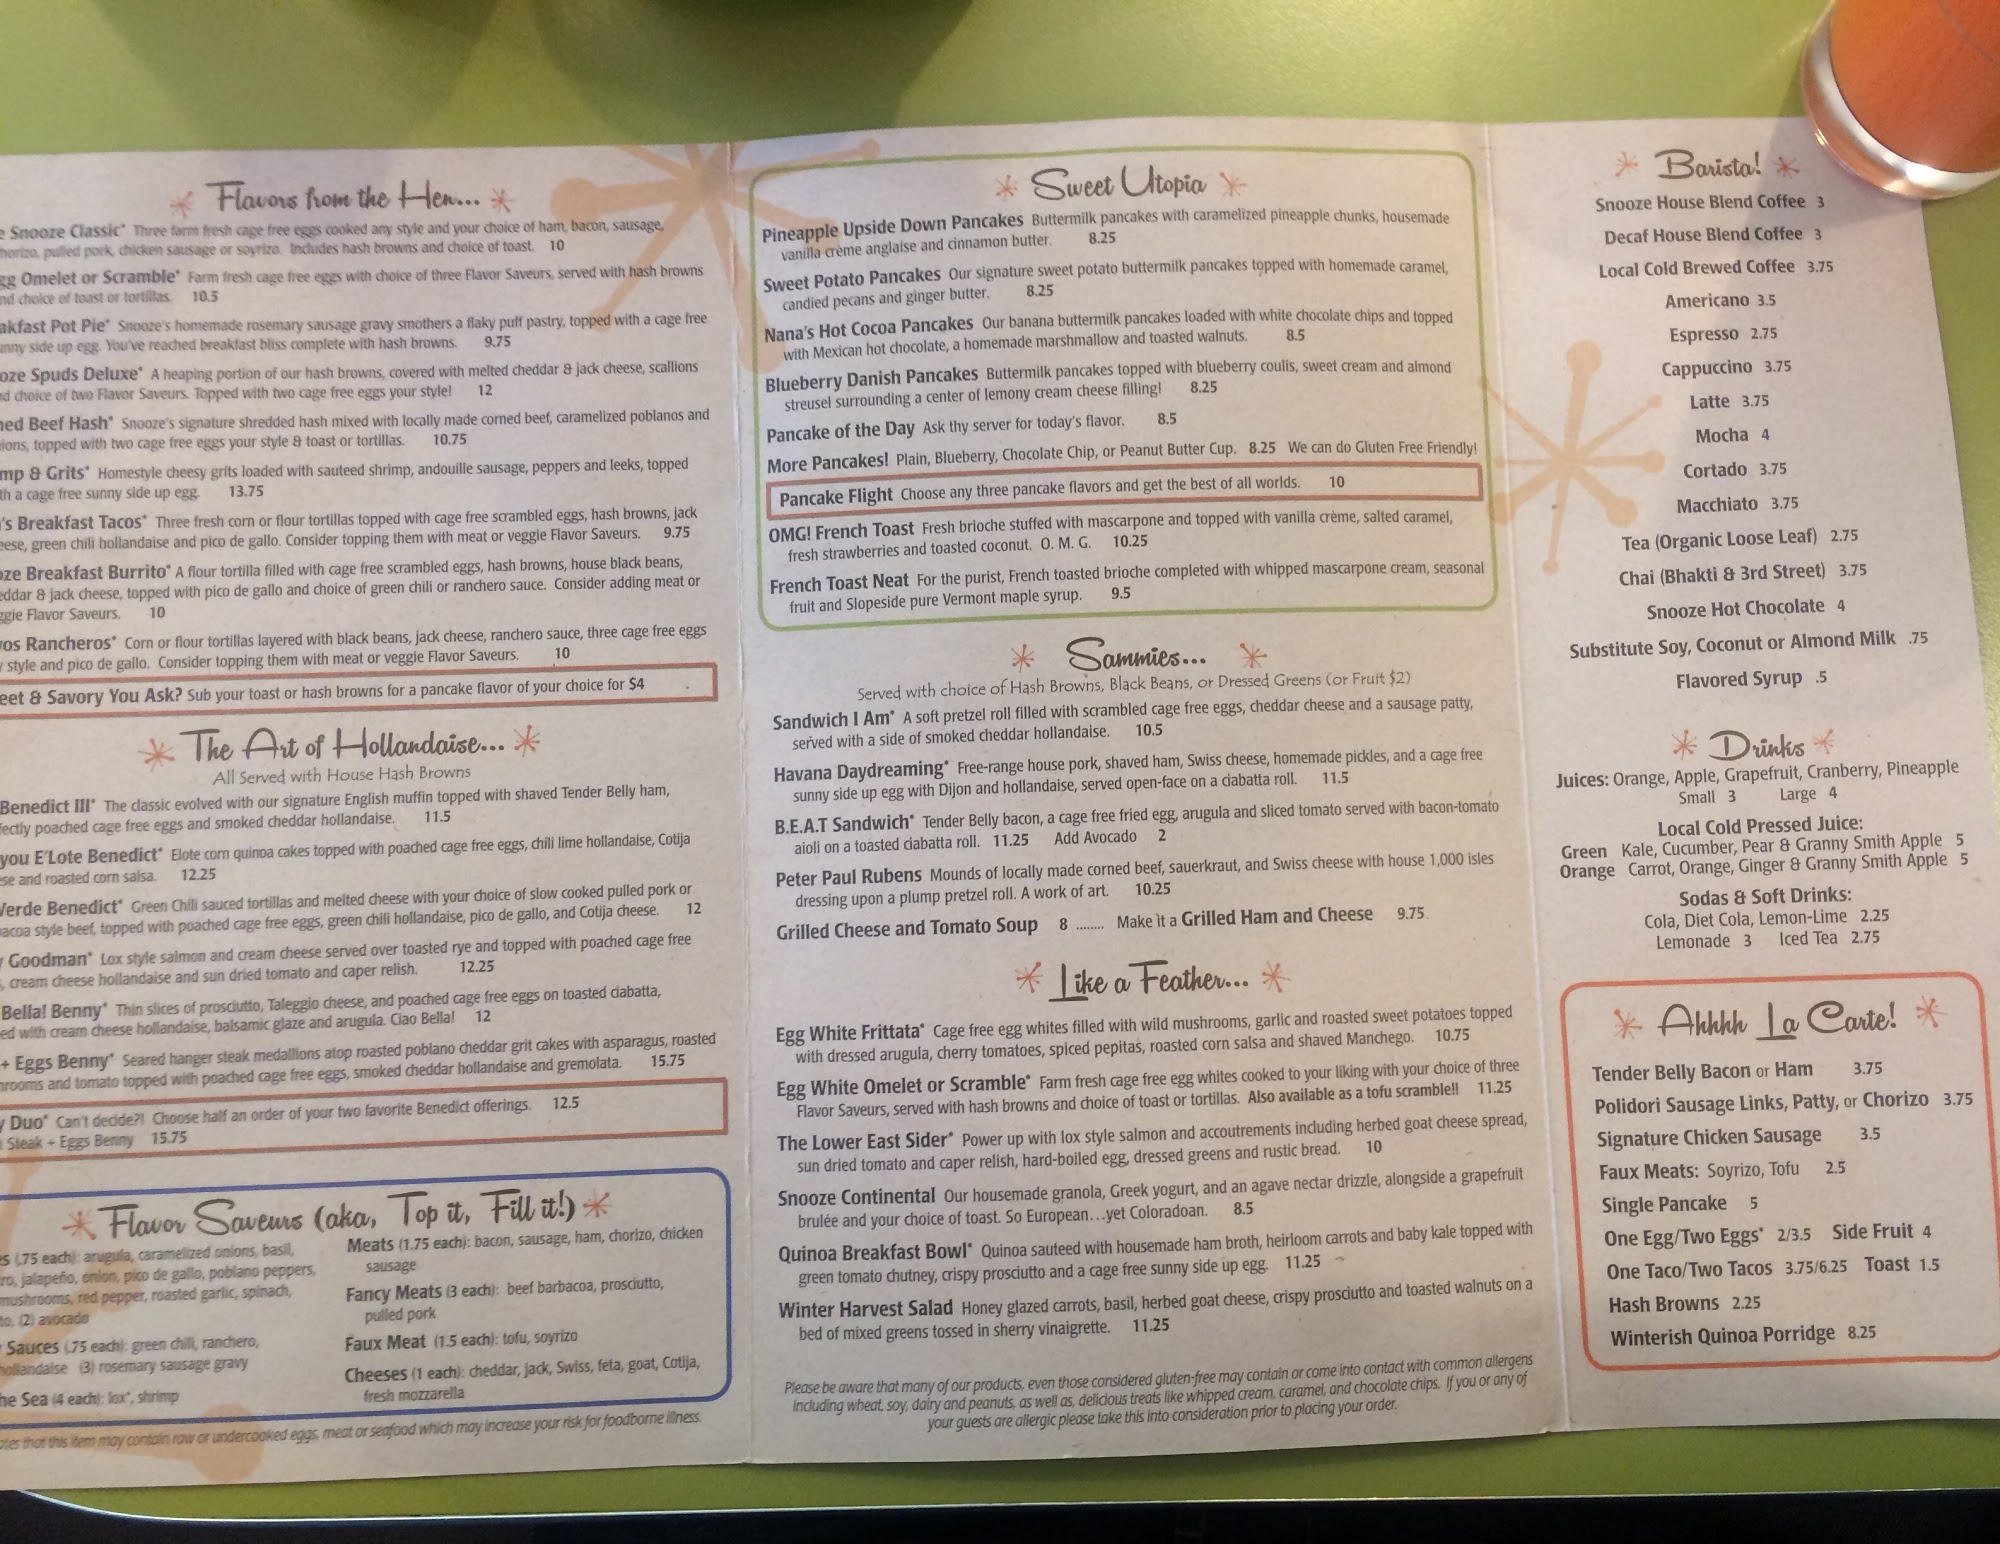 Flavors from the Hen...
Snooze Classic* Three farm fresh cage free eggs cooked any style and your choice of ham, bacon, sausage,
pulled pork, chicken sausage or soyrizo. Includes hash browns and choice of toast. 10
Omelet or Scramble* Farm fresh cage free eggs with choice of three Flavor Saveurs, served with hash browns
choice of toast or tortillas. 10.5
Pot Pie* Snooze's homemade rosemary sausage gravy smothers a flaky puff pastry, topped with a cage free
side up egg. You've reached breakfast bliss complete with hash browns. 9.75
Spuds Deluxe* A heaping portion of our hash browns, covered with melted cheddar & jack cheese, scallions
choice of two Flavor Saveurs. Topped with two cage free eggs your style! 12
Beef Hash* Snooze's signature shredded hash mixed with locally made corned beef, caramelized poblanos and
topped with two cage free eggs your style & toast or tortillas. 10.75
& Grits* Homestyle cheesy grits loaded with sauteed shrimp, andouille sausage, peppers and leeks, topped
a cage free sunny side up egg. 13.75
's Breakfast Tacos* Three fresh corn or flour tortillas topped with cage free scrambled eggs, hash browns, jack
green chili hollandaise and pico de gallo. Consider topping them with meat or veggie Flavor Saveurs. 9.75
Breakfast Burrito* A flour tortilla filled with cage free scrambled eggs, hash browns, house black beans,
& jack cheese, topped with pico de gallo and choice of green chili or ranchero sauce. Consider adding meat or
Flavor Saveurs. 10
Rancheros* Corn or flour tortillas layered with black beans, jack cheese, ranchero sauce, three cage free eggs
style and pico de gallo. Consider topping them with meat or veggie Flavor Saveurs. 10
& Savory You Ask? Sub your toast or hash browns for a pancake flavor of your choice for $4
The Art of Hollandaise...
All Served with House Hash Browns
Benedict III* The classic evolved with our signature English muffin topped with shaved Tender Belly ham,
poached cage free eggs and smoked cheddar hollandaise. 11.5
you E'Lote Benedict* Elote corn quinoa cakes topped with poached cage free eggs, chili lime hollandaise, Cotija
and roasted corn salsa. 12.25
Verde Benedict* Green Chili sauced tortillas and melted cheese with your choice of slow cooked pulled pork or
style beef, topped with poached cage free eggs, green chili hollandaise, pico de gallo, and Cotija cheese. 12
Goodman* Lox style salmon and cream cheese served over toasted rye and topped with poached cage free
cream cheese hollandaise and sun dried tomato and caper relish. 12.25
Bella! Benny* Thin slices of prosciutto, Taleggio cheese, and poached cage free eggs on toasted ciabatta,
with cream cheese hollandaise, balsamic glaze and arugula. Ciao Bella! 12
+ Eggs Benny* Seared hanger steak medallions atop roasted poblano cheddar grit cakes with asparagus, roasted
and tomato topped with poached cage free eggs, smoked cheddar hollandaise and gremolata. 15.75
Duo* Can't decide?! Choose half an order of your two favorite Benedict offerings. 12.5
Steak + Eggs Benny 15.75
Flavor Saveurs (aka, Top it, Fill it!)
(.75 each): arugula, caramelized onions, basil,
jalapeño, onion, pico de gallo, poblano peppers,
mushrooms, red pepper, roasted garlic, spinach,
(2) avocado
Sauces (.75 each): green chili, ranchero,
hollandaise (3) rosemary sausage gravy
Sea (4 each): lox*, shrimp
Meats (1.75 each): bacon, sausage, ham, chorizo, chicken
sausage
Fancy Meats (3 each): beef barbacoa, prosciutto,
pulled pork
Faux Meat (1.5 each): tofu, soyrizo
Cheeses (1 each): cheddar, jack, Swiss, feta, goat, Cotija,
fresh mozzarella
that this item may contain raw or undercooked eggs, meat or seafood which may increase your risk for foodborne illness.
Sweet Utopia
Pineapple Upside Down Pancakes Buttermilk pancakes with caramelized pineapple chunks, housemade
vanilla crème anglaise and cinnamon butter. 8.25
Sweet Potato Pancakes Our signature sweet potato buttermilk pancakes topped with homemade caramel,
candied pecans and ginger butter. 8.25
Nana's Hot Cocoa Pancakes Our banana buttermilk pancakes loaded with white chocolate chips and topped
with Mexican hot chocolate, a homemade marshmallow and toasted walnuts. 8.5
Blueberry Danish Pancakes Buttermilk pancakes topped with blueberry coulis, sweet cream and almond
streusel surrounding a center of lemony cream cheese filling! 8.25
Pancake of the Day Ask thy server for today's flavor. 8.5
More Pancakes! Plain, Blueberry, Chocolate Chip, or Peanut Butter Cup. 8.25 We can do Gluten Free Friendly!
Pancake Flight Choose any three pancake flavors and get the best of all worlds. 10
OMG! French Toast Fresh brioche stuffed with mascarpone and topped with vanilla crème, salted caramel,
fresh strawberries and toasted coconut. O. M. G. 10.25
French Toast Neat For the purist, French toasted brioche completed with whipped mascarpone cream, seasonal
fruit and Slopeside pure Vermont maple syrup. 9.5
Sammies...
Served with choice of Hash Browns, Black Beans, or Dressed Greens (or Fruit $2)
Sandwich I Am* A soft pretzel roll filled with scrambled cage free eggs, cheddar cheese and a sausage patty,
served with a side of smoked cheddar hollandaise. 10.5
Havana Daydreaming* Free-range house pork, shaved ham, Swiss cheese, homemade pickles, and a cage free
sunny side up egg with Dijon and hollandaise, served open-face on a ciabatta roll. 11.5
B.E.A.T Sandwich* Tender Belly bacon, a cage free fried egg, arugula and sliced tomato served with bacon-tomato
aioli on a toasted ciabatta roll. 11.25 Add Avocado 2
Peter Paul Rubens Mounds of locally made corned beef, sauerkraut, and Swiss cheese with house 1,000 isles
dressing upon a plump pretzel roll. A work of art. 10.25
Grilled Cheese and Tomato Soup 8 ........ Make it a Grilled Ham and Cheese 9.75
Like a Feather...
Egg White Frittata* Cage free egg whites filled with wild mushrooms, garlic and roasted sweet potatoes topped
with dressed arugula, cherry tomatoes, spiced pepitas, roasted corn salsa and shaved Manchego. 10.75
Egg White Omelet or Scramble* Farm fresh cage free egg whites cooked to your liking with your choice of three
Flavor Saveurs, served with hash browns and choice of toast or tortillas. Also available as a tofu scramble!! 11.25
The Lower East Sider* Power up with lox style salmon and accoutrements including herbed goat cheese spread,
sun dried tomato and caper relish, hard-boiled egg, dressed greens and rustic bread. 10
Snooze Continental Our housemade granola, Greek yogurt, and an agave nectar drizzle, alongside a grapefruit
brulée and your choice of toast. So European...yet Coloradoan. 8.5
Quinoa Breakfast Bowl* Quinoa sauteed with housemade ham broth, heirloom carrots and baby kale topped with
green tomato chutney, crispy prosciutto and a cage free sunny side up egg. 11.25
Winter Harvest Salad Honey glazed carrots, basil, herbed goat cheese, crispy prosciutto and toasted walnuts on a
bed of mixed greens tossed in sherry vinaigrette. 11.25
Please be aware that many of our products, even those considered gluten-free may contain or come into contact with common allergens
including wheat, soy, dairy and peanuts, as well as, delicious treats like whipped cream, caramel, and chocolate chips. If you or any of
your guests are allergic please take this into consideration prior to placing your order.
Barista!
Snooze House Blend Coffee 3
Decaf House Blend Coffee 3
Local Cold Brewed Coffee 3.75
Americano 3.5
Espresso 2.75
Cappuccino 3.75
Latte 3.75
Mocha 4
Cortado 3.75
Macchiato 3.75
Tea (Organic Loose Leaf) 2.75
Chai (Bhakti & 3rd Street) 3.75
Snooze Hot Chocolate 4
Substitute Soy, Coconut or Almond Milk .75
Flavored Syrup .5
Drinks
Juices: Orange, Apple, Grapefruit, Cranberry, Pineapple
Small 3 Large 4
Local Cold Pressed Juice:
Green Kale, Cucumber, Pear & Granny Smith Apple 5
Orange Carrot, Orange, Ginger & Granny Smith Apple 5
Sodas & Soft Drinks:
Cola, Diet Cola, Lemon-Lime 2.25
Lemonade 3 Iced Tea 2.75
Ahhhh La Carte!
Tender Belly Bacon or Ham 3.75
Polidori Sausage Links, Patty, or Chorizo 3.75
Signature Chicken Sausage 3.5
Faux Meats: Soyrizo, Tofu 2.5
Single Pancake 5
One Egg/Two Eggs* 2/3.5 Side Fruit 4
One Taco/Two Tacos 3.75/6.25 Toast 1.5
Hash Browns 2.25
Winterish Quinoa Porridge 8.25